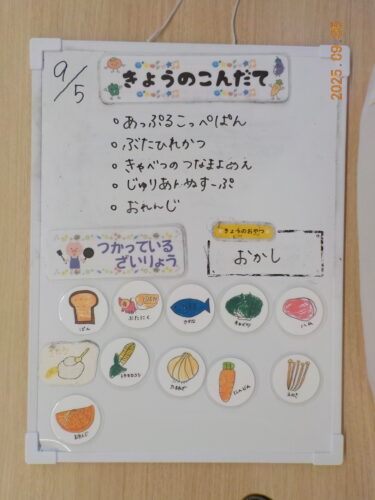 2025.09.05
9/5
きょうのこんだて
。あっぷるこっぺぱん
。ぶたひれかつ
。きゃべつのつなまよあえ
。じゅりあんぬすーぷ
。おれんじ
つかっている
ざいりょう
きょうのおやつ
おかし
ぱん
ぶたにく
さかな
きゃべつ
はむ
とうもろこし
たまねぎ
にんじん
えのき
おれんじ